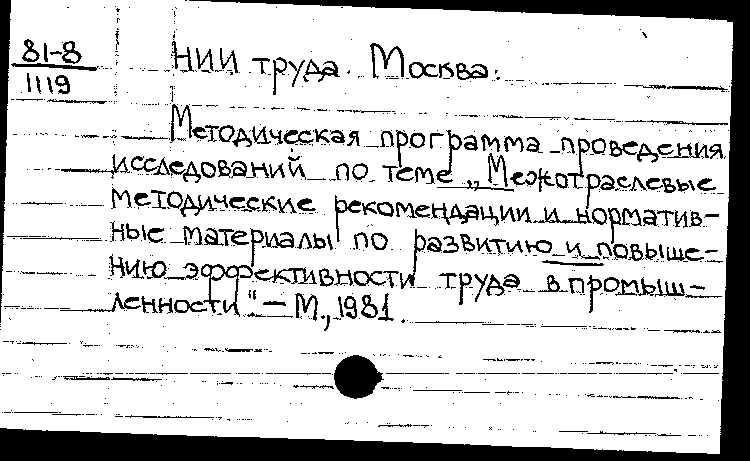 81-8
1119
НИИ труда. Москва.
Методическая программа проведения
исследований по теме „Межотраслевые
методические рекомендации и норматив-
ные материалы по развитию и повыше-
нию эффективности труда в промыш-
ленности" – М., 1981.